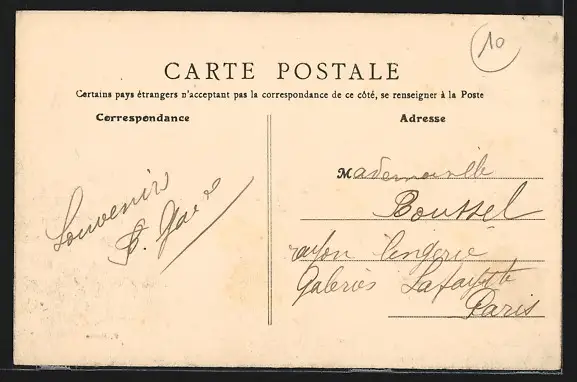 10
CARTE POSTALE
Certains pays étrangers n'acceptant pas la correspondance de ce côté, se renseigner à la Poste
Correspondance
Adresse
Mademoiselle
Boussel
rayon lingerie
Galeries Lafayette
Paris
Souvenirs